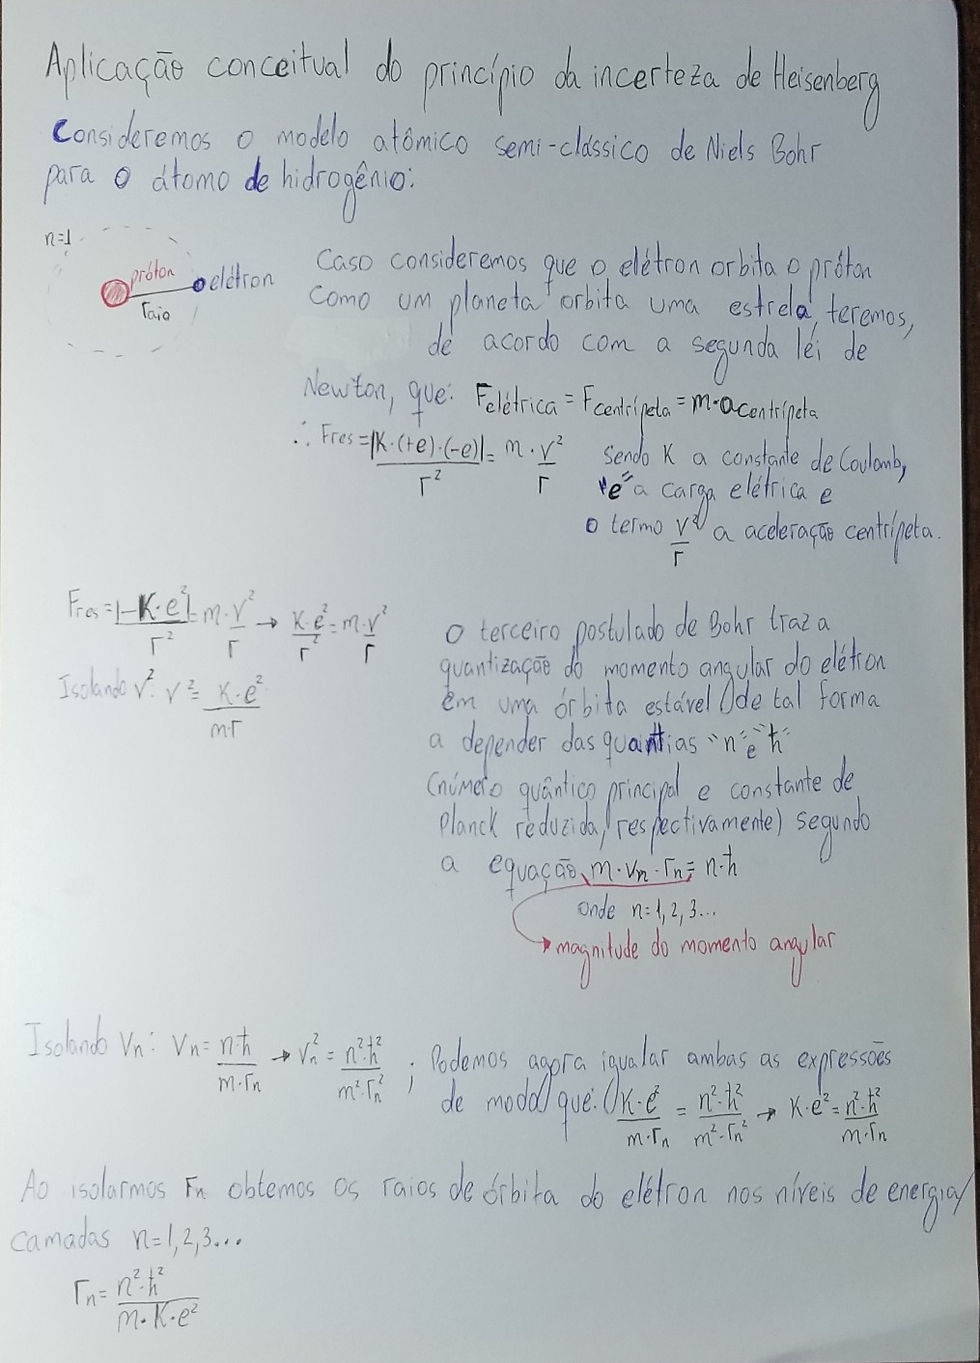 Aplicação conceitual do princípio da incerteza de Heisenberg
Consideremos o modelo atômico semi-clássico de Niels Bohr
para o átomo de hidrogênio:
n=1
próton
elétron
raio
Caso consideremos que o elétron orbita o próton
como um planeta orbita uma estrela, teremos,
de acordo com a segunda lei de
Newton, que: Felétrica = Fcentrípeta = m·acentrípeta
∴ Fres = |K·(+e)·(-e)|/r² = m·v²/r
sendo K a constante de Coulomb,
"e" a carga elétrica e
o termo v²/r a aceleração centrípeta.
Fres = |-K·e²|/r² = m·v²/r → K·e²/r² = m·v²/r
Isolando v²: v² = K·e²/(m·r)
O terceiro postulado de Bohr traz a
quantização do momento angular do elétron
em uma órbita estável de tal forma
a depender das quantias "n" e "ħ"
(número quântico principal e constante de
Planck reduzida, respectivamente) segundo
a equação, m·vn·rn = n·ħ
onde n=1,2,3...
magnitude do momento angular
Isolando Vn: Vn = n·ħ/(m·rn) → Vn² = n²·ħ²/(m²·rn²) ; Podemos agora igualar ambas as expressões
de modo que: K·e²/(m·rn) = n²·ħ²/(m²·rn²) → K·e² = n²·ħ²/(m·rn)
Ao isolarmos rn obtemos os raios de órbita do elétron nos níveis de energia/
camadas n=1,2,3...
rn = n²·ħ²/(m·K·e²)